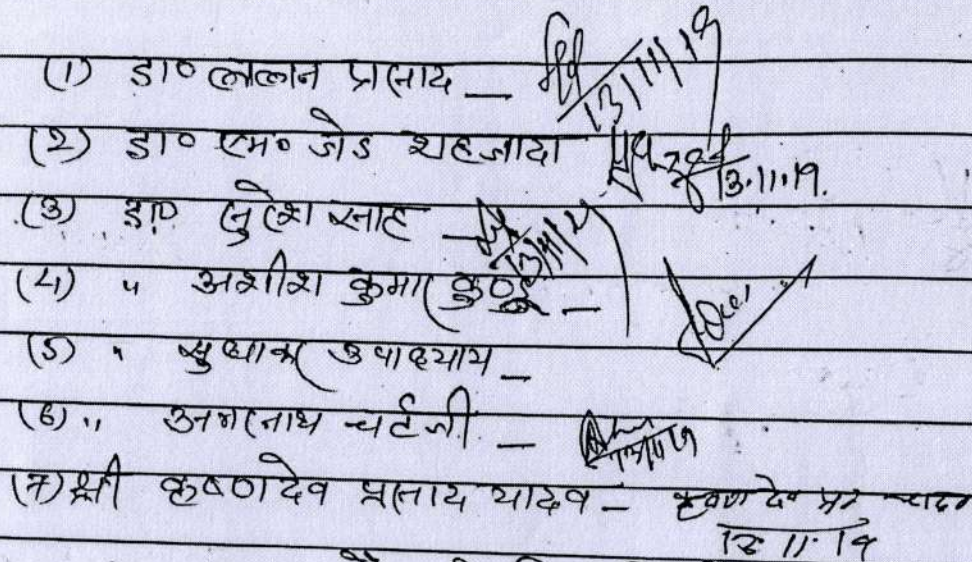 (1) डा० ललन प्रसाद — 13/11/19
(2) डा० एम० जेड शहजादा 13.11.19.
(3) डा० सुरेश साह — 13/11/19
(4) " अशीश कुमार कुण्डू —
(5) " सुधाकर उपाध्याय —
(6) " अमरनाथ चटर्जी — 13/11/19
(7) श्री कृष्णदेव प्रसाद यादव — कृष्ण देव प्र० यादव
13.11.19